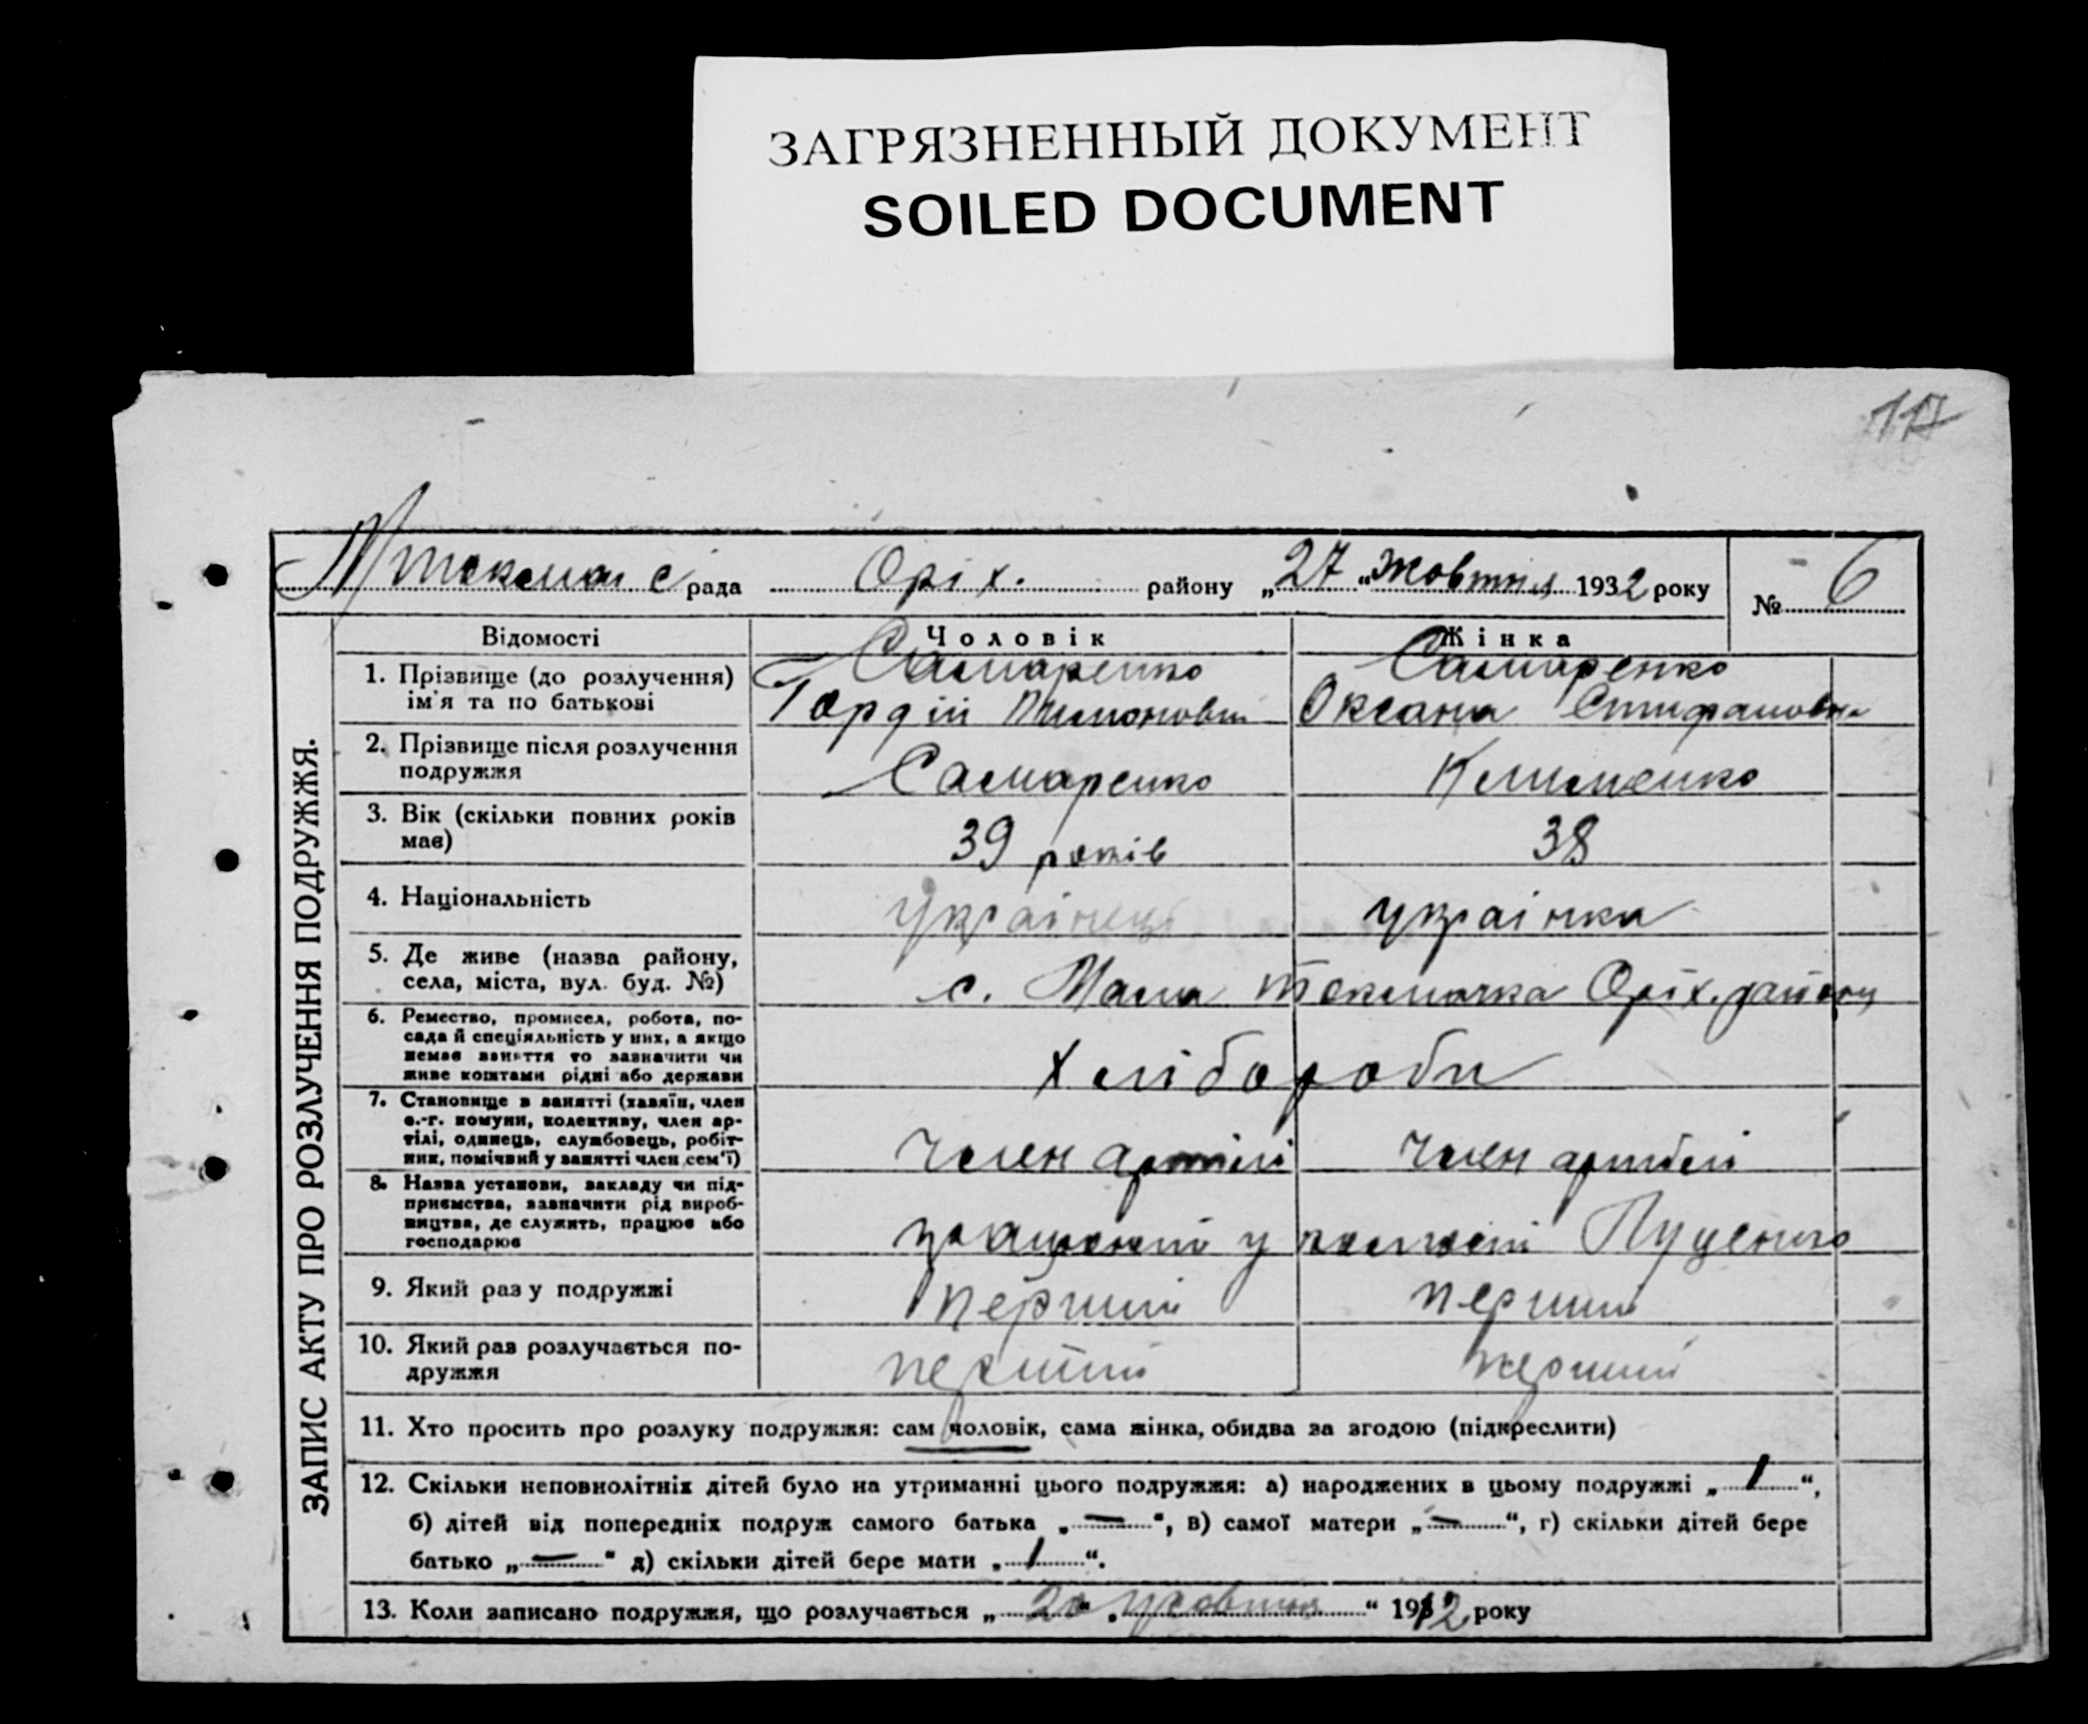 ЗАГРЯЗНЕННЫЙ ДОКУМЕНТ
SOILED DOCUMENT
117
ЗАПИС АКТУ ПРО РОЗЛУЧЕННЯ ПОДРУЖЖЯ.
рада Оріх. району „27“ жовтня 1932 року № 6
Відомості Чоловік Жінка
1. Прізвище (до розлучення) Самаренко Самаренко
ім'я та по батькові Гордій Оксана
2. Прізвище після розлучення
подружжя Самаренко Клименко
3. Вік (скільки повних років
має) 39 років 38
4. Національність українці українка
5. Де живе (назва району,
села, міста, вул. буд. №) с. Мала Токмачка Оріх. району
6. Ремество, промисел, робота, по-
сада й спеціяльність у них, а якщо
немає заняття то зазначити чи
живе коштами рідні або держави Хлібороби
7. Становище в занятті (хазяїн, член
с.-г. комуни, колективу, член ар-
тілі, одинець, службовець, робіт-
ник, помічний у занятті член сем'ї) член артілі член артілі
8. Назва установи, закладу чи під-
приємства, зазначити рід вироб-
ництва, де служить, працює або
господарює у
9. Який раз у подружжі перший перший
10. Який раз розлучається по-
дружжя перший перший
11. Хто просить про розлуку подружжя: сам чоловік, сама жінка, обидва за згодою (підкреслити)
12. Скільки неповнолітніх дітей було на утриманні цього подружжя: а) народжених в цьому подружжі „1“,
б) дітей від попередніх подруж самого батька „—“, в) самої матери „—“, г) скільки дітей бере
батько „—“ д) скільки дітей бере мати „1“.
13. Коли записано подружжя, що розлучається „20“ „жовтня“ 1912 року